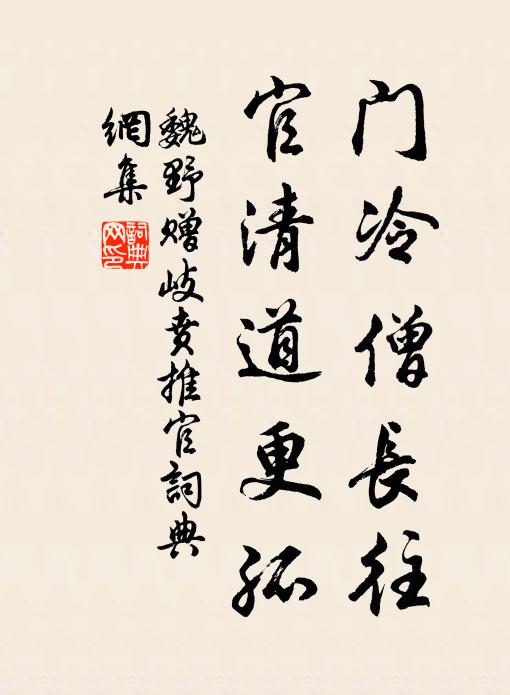 门冷僧長往
官清道更孤
魏野赠岐賁推官詞典
網集
詞典
网印